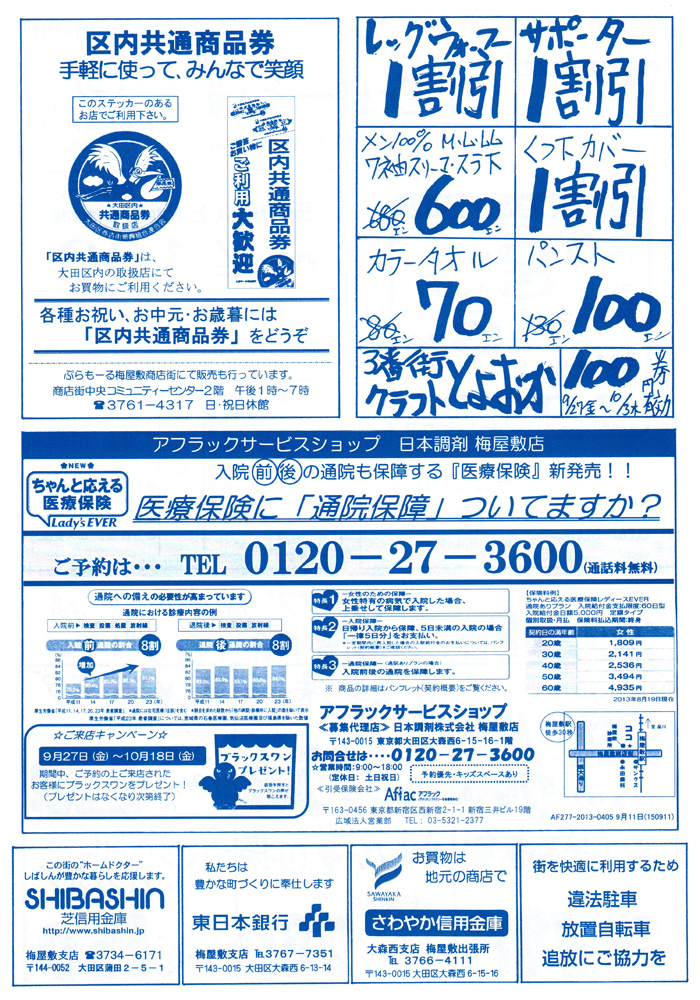 区内共通商品券
手軽に使って、みんなで笑顔
このステッカーのある
お店でご利用下さい。
大田区内
共通商品券
取扱店
区内共通商品券
ご利用大歓迎
「区内共通商品券」は、
大田区内の取扱店にて
お買物にご利用ください。
各種お祝い、お中元・お歳暮には
「区内共通商品券」をどうぞ
ぷらもーる梅屋敷商店街にて販売も行っています。
商店街中央コミュニティーセンター2階 午後1時～7時
☎3761-4317 日・祝日休館
レッグウォーマー
1割引
サポーター
1割引
メン100% M・L・LL
7袖スリーマ・スラ下
680 600エン
くつ下カバー
1割引
カラータオル
80 70エン
パンスト
130 100エン
3番街
クラフトとよおか
100円券
9/27金～10/3木有効
アフラックサービスショップ 日本調剤 梅屋敷店
NEW
ちゃんと応える
医療保険
Lady's EVER
入院前後の通院も保障する『医療保険』新発売！！
医療保険に「通院保障」ついてますか？
ご予約は・・・ TEL 0120－27－3600(通話料無料)
通院への備えの必要性が高まっています
通院における診療内容の例
入院前▶検査 投薬 処置 放射線
退院後▶検査 投薬 放射線
入院前通院の割合 8割
退院後通院の割合 8割
増加
平成11 14 17 20 23(年)
平成11 14 17 20 23(年)
特長1 ―女性のための保障―
女性特有の病気で入院した場合、
上乗せして保障します。
特長2 ―入院保障―
日帰り入院から保障、5日未満の入院の場合
「一律5日分」をお支払い。
特長3 ―通院保障―(通院ありプランの場合)
入院前後の通院を保障します。
※ 商品の詳細はパンフレット(契約概要)をご覧ください。
【保険料例】
ちゃんと応える医療保険レディースEVER
通院ありプラン 入院給付金支払限度:60日型
入院給付金日額5,000円 定額タイプ
個別取扱・月払 保険料払込期間:終身
契約日の満年齢 女性
20歳 1,809円
30歳 2,141円
40歳 2,536円
50歳 3,494円
60歳 4,935円
2013年8月19日現在
☆ご来店キャンペーン☆
9月27日(金)～10月18日(金)
期間中、ご予約の上ご来店された
お客様にブラックスワンをプレゼント！
(プレゼントはなくなり次第終了)
ブラックスワン
プレゼント！
アフラックサービスショップ
≪募集代理店≫日本調剤株式会社 梅屋敷店
〒143-0015 東京都大田区大森西6-15-16-1階
お問合せは・・・0120-27-3600
☆営業時間:9:00～18:00
(定休日: 土日祝日)
予約優先・キッズスペースあり
≪引受保険会社≫
Aflac アフラック
〒163-0456 東京都新宿区西新宿2-1-1 新宿三井ビル19階
広域法人営業部 TEL: 03-5321-2377
梅屋敷駅
徒歩30秒
ココ
AF277-2013-0405 9月11日(150911)
この街の“ホームドクター”
しばしんが豊かな暮らしを応援します。
SHIBASHIN
芝信用金庫
http://www.shibashin.jp
梅屋敷支店 ☎3734-6171
〒144-0052 大田区蒲田2-5-1
私たちは
豊かな町づくりに奉仕します
東日本銀行
梅屋敷支店 TEL3767-7351
〒143-0015 大田区大森西6-13-14
SAWAYAKA
SHINKIN
お買物は
地元の商店で
さわやか信用金庫
大森西支店 梅屋敷出張所
TEL 3766-4111
〒143-0015 大田区大森西6-15-16
街を快適に利用するため
違法駐車
放置自転車
追放にご協力を